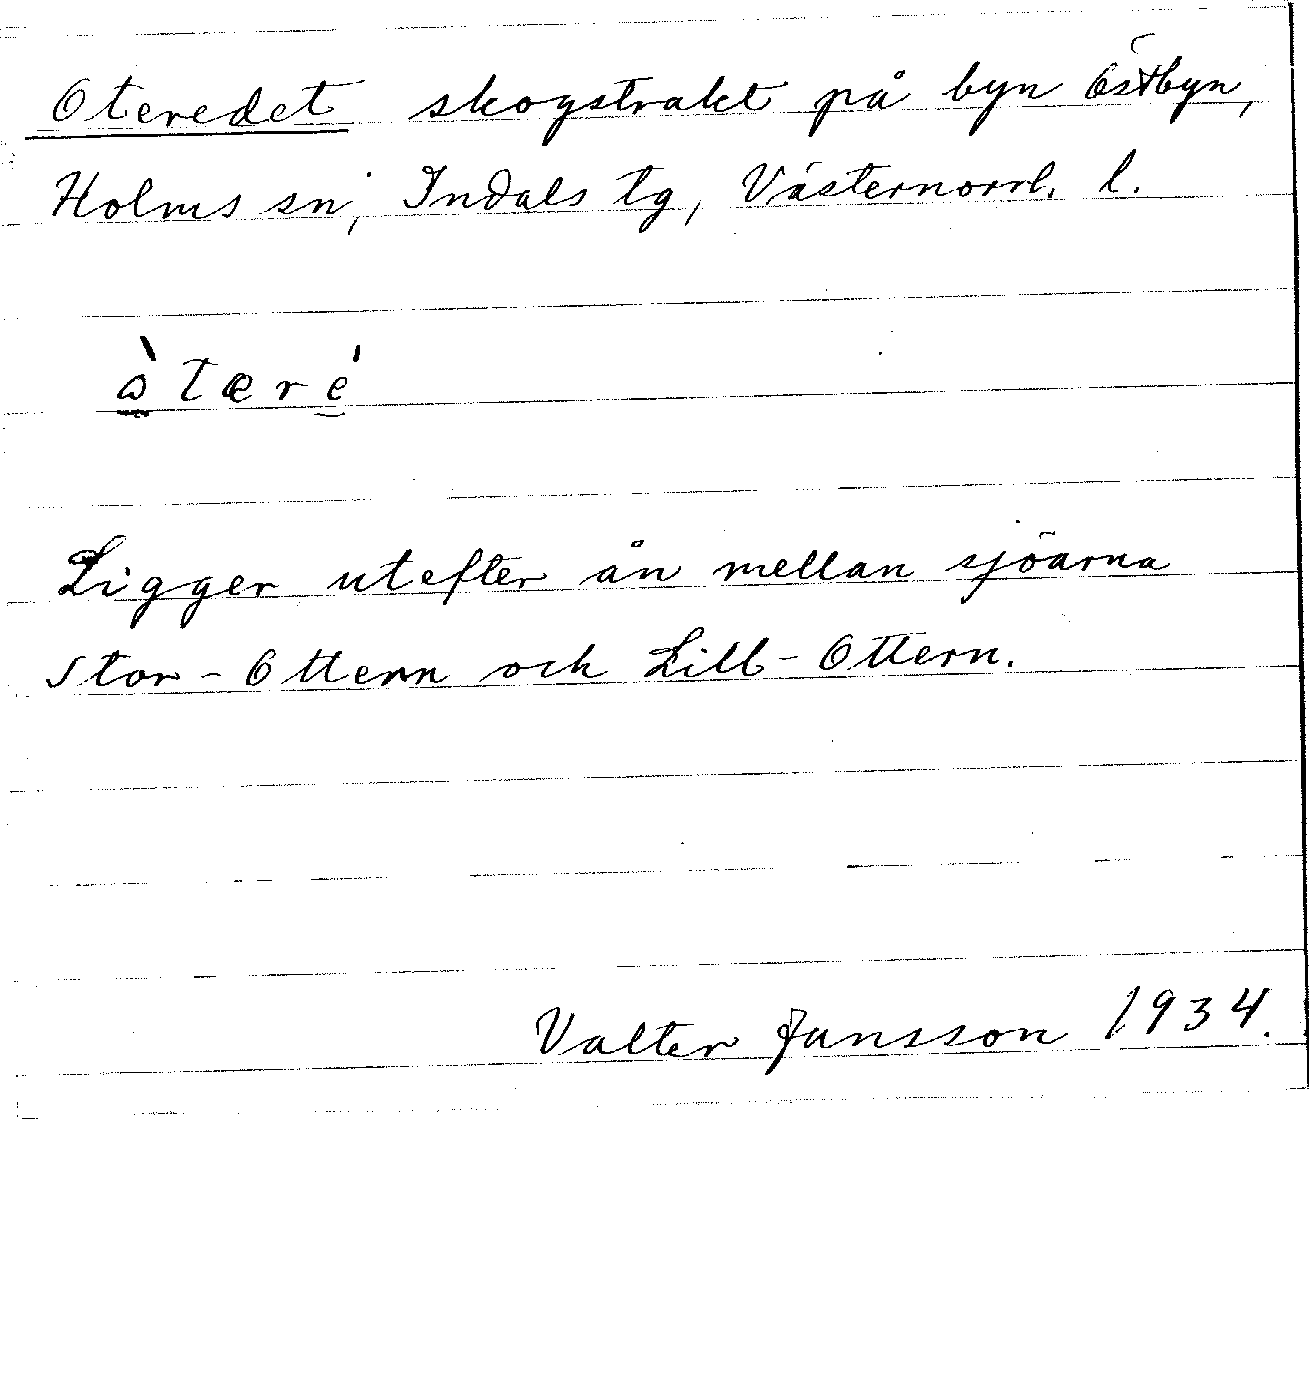 Oteredet skogstrakt på byn Östbyn,
Holms sn, Indals tg, Västernorrl. l.
Ligger utefter ån mellan sjöarna
Stor-Ottern och Lill-Ottern.
Valter Jansson 1934.